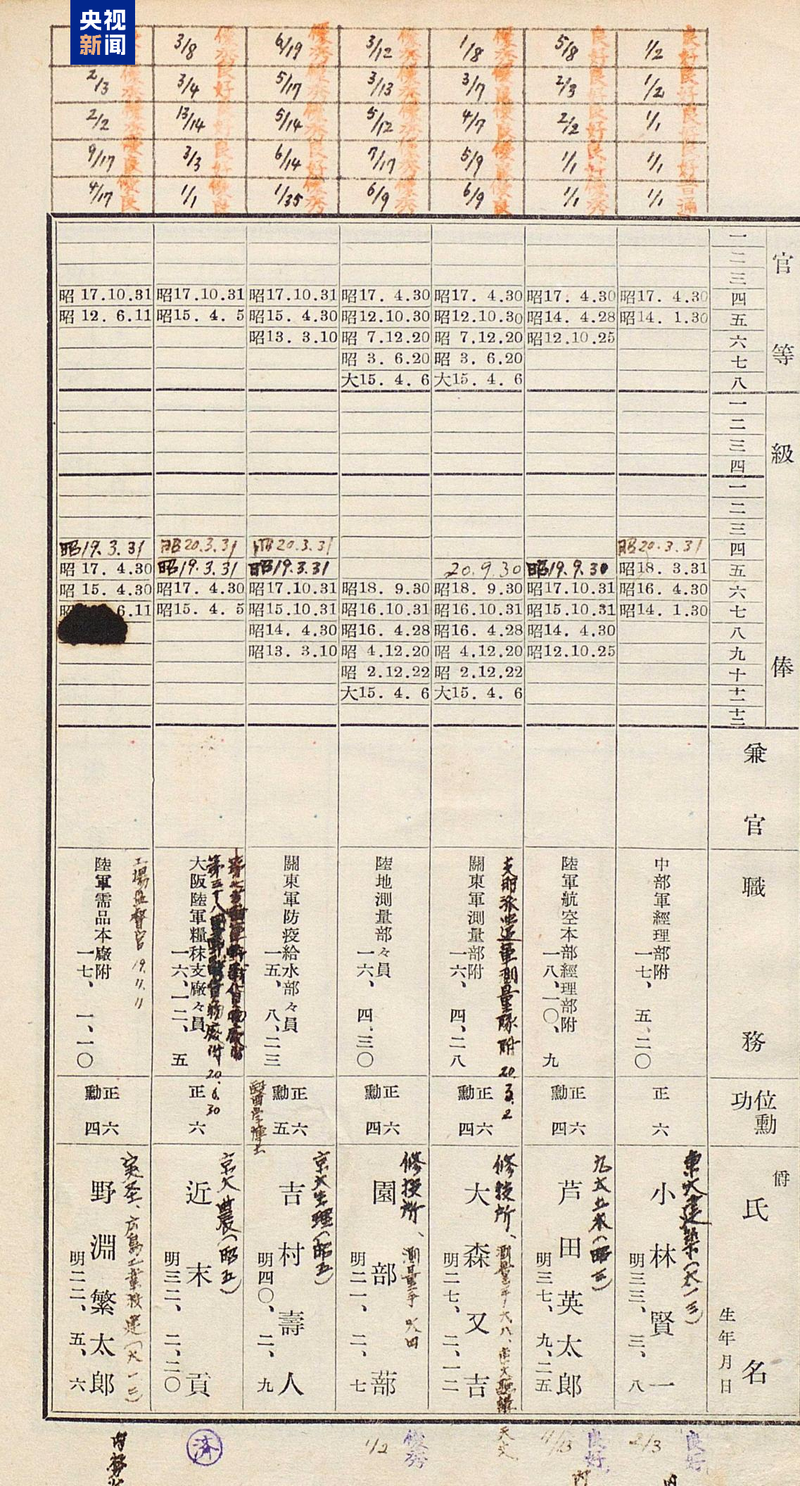 央视
新闻
1/2 良好
1/2 良好
1/1
1/1
1/1 普通
5/8 良好
2/3 良好
2/2 良好
1/1 良好
1/1 優秀
1/8 優秀
3/7 優良
4/7 優良
5/9 優良
6/9 優良
3/12 優秀
3/13 優秀
5/12 優秀
7/17 優秀
6/9 優秀
6/19 優秀
5/17 優秀
5/14 優秀
6/14 優秀
1/35 優秀
3/8 優秀
3/4 良好
13/14 良好
3/3 良好
1/1 優良
2/3 優秀
2/2 優秀
9/17 優良
4/17 優良
官等
一
二
三
四
五
六
七
八
級俸
一
二
三
四
一
二
三
四
五
六
七
八
九
十
十一
十二
兼官
職務
位勳功
爵
氏名
生年月日
昭17. 4.30
昭14. 1.30
昭20.3.31
昭18. 3.31
昭16. 4.30
昭14. 1.30
中部軍經理部附
一七、五、二〇
正六
東大建築(大一三)
小林賢一
明三三、三、八
昭17. 4.30
昭14. 4.28
昭12.10.25
昭19.9.30
昭17.10.31
昭15.10.31
昭14. 4.30
昭12.10.25
陸軍航空本部經理部附
一八、一〇、九
正六
勳四
芦田英太郎
明三七、九、二五
昭17. 4.30
昭12.10.30
昭 7.12.20
昭 3. 6.20
大15. 4. 6
20.9.30
昭18. 9.30
昭16.10.31
昭16. 4.28
昭 4.12.20
昭 2.12.22
大15. 4. 6
關東軍測量部附
一六、四、二八
正六
勳四
修技所
大森又吉
明二七、二、一二
昭17. 4.30
昭12.10.30
昭 7.12.20
昭 3. 6.20
大15. 4. 6
昭18. 9.30
昭16.10.31
昭16. 4.28
昭 4.12.20
昭 2.12.22
大15. 4. 6
陸地測量部々員
一六、四、三〇
正六
勳四
修技所、測量手
園部蔀
明二一、二、七
昭17.10.31
昭15. 4.30
昭13. 3.10
昭20.3.31
昭19.3.31
昭17.10.31
昭15.10.31
昭14. 4.30
昭13. 3.10
關東軍防疫給水部々員
一五、八、二三
正六
勳五
京大生理(昭五)
吉村壽人
明四〇、二、九
昭17.10.31
昭15. 4. 5
昭20.3.31
昭19.3.31
昭17. 4.30
昭15. 4. 5
大阪陸軍糧秣支廠々員
一六、一二、五
20.6.30
正六
京大農(昭五)
近末貢
明三二、二、二〇
昭 17.10.31
昭 12. 6.11
昭19.3.31
昭 17. 4.30
昭 15. 4.30
6.11
陸軍需品本廠附
一七、一、一〇
正六
勳四
野淵繁太郎
明二二、五、六
良好
2/3
良好
4/13
天文
優秀
1/2
済